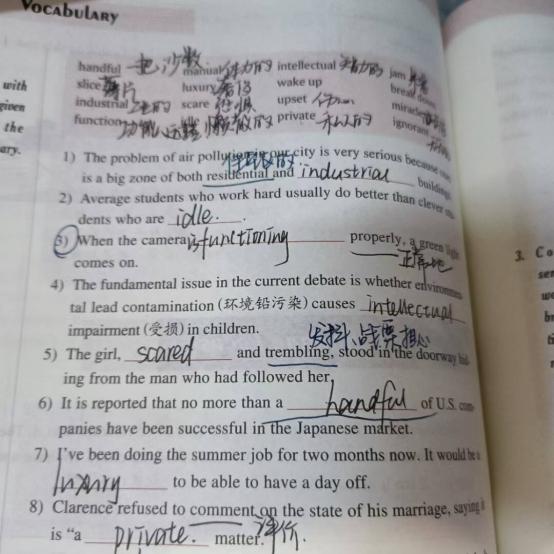 VOCABULARY
handful 一把 少数 manual 体力的 intellectual 智力的 jam
slice 薄片 luxury 奢侈 wake up break down
industrial 工业的 scare 恐惧 upset miracle
function 功能 运转 懒散的 private 私人的 ignorant
with
given
the
ary.
1) The problem of air pollution in our city is very serious because
is a big zone of both residential and industrial building
2) Average students who work hard usually do better than clever
dents who are idle.
3) When the camera is functioning properly, a green light
正常地
comes on.
4) The fundamental issue in the current debate is whether environmen
tal lead contamination (环境铅污染) causes intellectual
impairment (受损) in children.
发抖、战栗 担心
5) The girl, scared and trembling, stood in the doorway hid
ing from the man who had followed her.
6) It is reported that no more than a handful of U.S. com
panies have been successful in the Japanese market.
7) I've been doing the summer job for two months now. It would be a
luxury to be able to have a day off.
8) Clarence refused to comment on the state of his marriage, saying it
is "a private. matter. 评价.
3. Co
sen